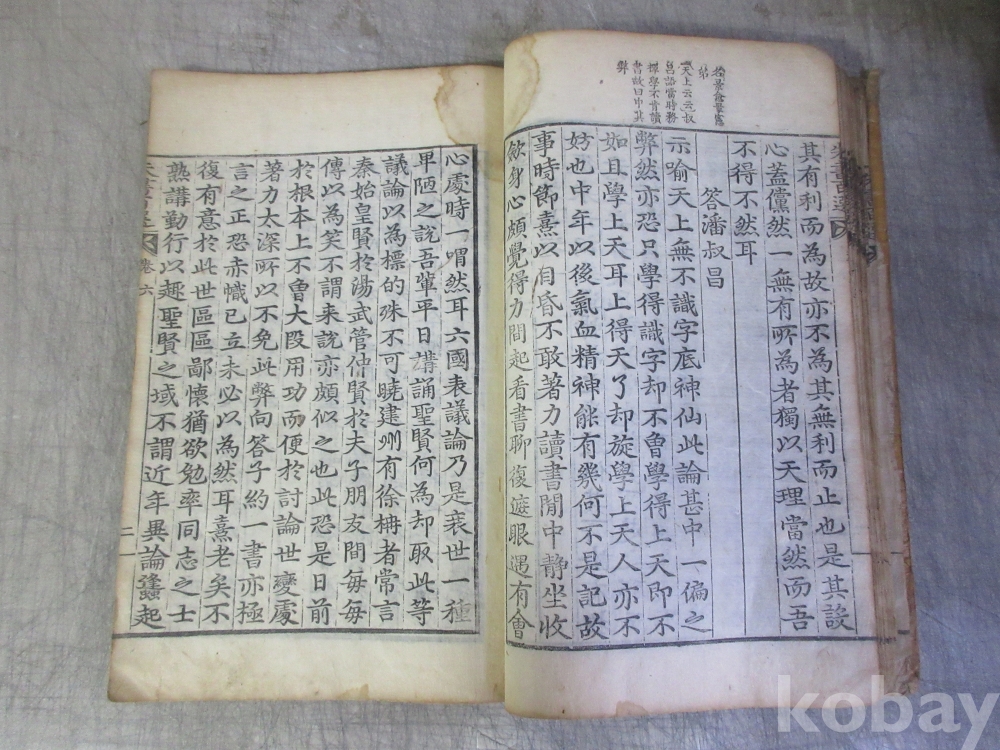 其有利而為故亦不為其無利而止也是其設
心蓋儻然一無有所為者獨以天理當然而吾
不得不然耳
答潘叔昌
示喻天上無不識字底神仙此論甚中一偏之
弊然亦恐只學得識字却不曾學得上天即不
如且學上天耳上得天了却旋學上天人亦不
妨也中年以後氣血精神能有幾何不是記故
事時節熹以目昏不敢著力讀書閒中静坐收
斂身心頗覺得力間起看書聊復遮眼遇有會
天上云云叔
昌語當時務
禪學不肯讀
書故曰中其
弊
心處時一喟然耳六國表議論乃是衰世一種
卑陋之說吾輩平日講誦聖賢何為却取此等
議論以為標的殊不可曉建州有徐柟者常言
秦始皇賢於湯武管仲賢於夫子朋友間每每
傳以為笑不謂来說亦頗似之也此恐是日前
於根本上不曾大段用功而便於討論世變處
著力太深所以不免此弊向答子約一書亦極
言之正恐赤幟已立未必以為然耳熹老矣不
復有意於此世區區鄙懷猶欲勉率同志之士
熟講勤行以趣聖賢之域不謂近年異論蠭起
卷六
二
kobay